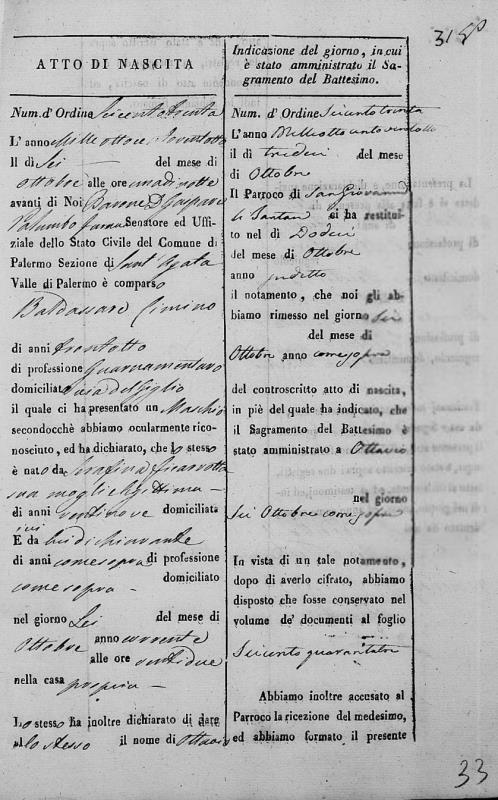 315
ATTO DI NASCITA
Num. d' Ordine Seicentotrenta
L' anno Milleottoc. ventotto
Il dì Sei del mese di
Ottobre alle ore una di notte
avanti di Noi Barone D. Gaspare
Palumbo Senatore ed Uffi-
ziale dello Stato Civile del Comune di
Palermo Sezione di Sant' Agata
Valle di Palermo è comparso
Baldassare Cimino
di anni trentotto
di professione
domiciliato via del Giglio
il quale ci ha presentato un Maschio
secondocchè abbiamo ocularmente rico-
nosciuto, ed ha dichiarato, che lo stesso
è nato da Serafina Ficarrotta
sua moglie legittima
di anni ventinove domiciliata
ivi
E da lui dichiarante
di anni come sopra di professione
come sopra domiciliato
nel giorno Sei del mese di
Ottobre anno corrente
alle ore ventidue
nella casa propria
Lo stesso ha inoltre dichiarato di dare
allo stesso il nome di Ottavio
Indicazione del giorno, in cui
è stato amministrato il Sa-
gramento del Battesimo.
Num. d' Ordine Seicento trenta
L' anno Milleottocento ventotto
il dì tredici del mese
di Ottobre
Il Parroco di San Giovanni
li Tartari ci ha restitui-
to nel dì Dodici
del mese di Ottobre
anno sudetto
il notamento, che noi gli ab-
biamo rimesso nel giorno Sei
del mese di
Ottobre anno come sopra
del controscritto atto di nascita,
in piè del quale ha indicato, che
il Sagramento del Battesimo è
stato amministrato a Ottavio
a nel giorno
Sei Ottobre come sopra
In vista di un tale notamento,
dopo di averlo cifrato, abbiamo
disposto che fosse conservato nel
volume de' documenti al foglio
Seicento quarantatre
Abbiamo inoltre accusato al
Parroco la ricezione del medesimo,
ed abbiamo formato il presente
33